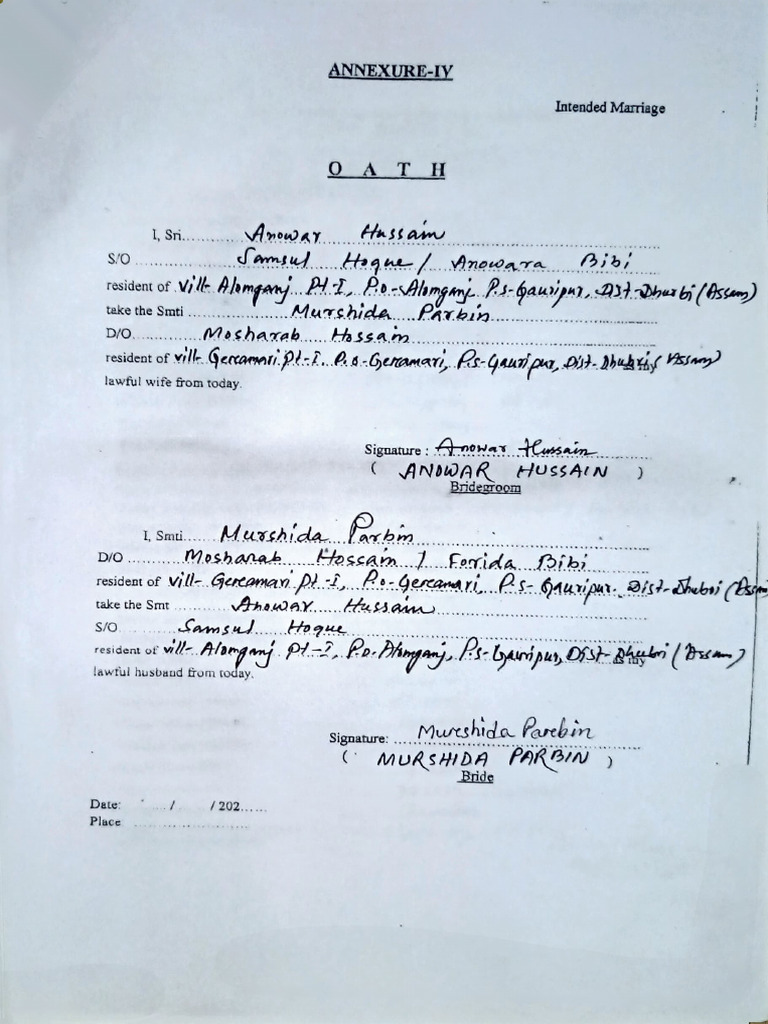 ANNEXURE-IV
Intended Marriage
O A T H
I, Sri.......... Anowar Hussain
S/O ............ Samsul Hoque / Anowara Bibi
resident of vill- Alomganj Pt-I, P.o-Alomganj P.s-Gauripur, Dist-Dhurbi (Assam)
take the Smti ........ Murshida Parbin
D/O............ Mosharab Hossain
resident of vill- Gercamari Pt-I. P.o-Gercamari, P.s-Gauripur, Dist-Dhubri (Assam) as my
lawful wife from today.
Signature : Anowar Hussain
( ANOWAR HUSSAIN )
Bridegroom
I, Smti...... Murshida Parbin
D/O ........... Mosharab Hossain / Forida Bibi
resident of vill- Gercamari Pt-I, P.o-Gercamari, P.s- Gauripur. Dist-Dhubri (Assam
take the Smt ........ Anowar Hussain
S/O........... Samsul Hoque
resident of vill- Alomganj Pt-I, P.o-Alomganj, P.s-Gauripur, Dist-Dhubri (Assam) as my
lawful husband from today.
Signature: Murshida Parbin
( MURSHIDA PARBIN )
Bride
Date: ..../ /202......
Place ........................